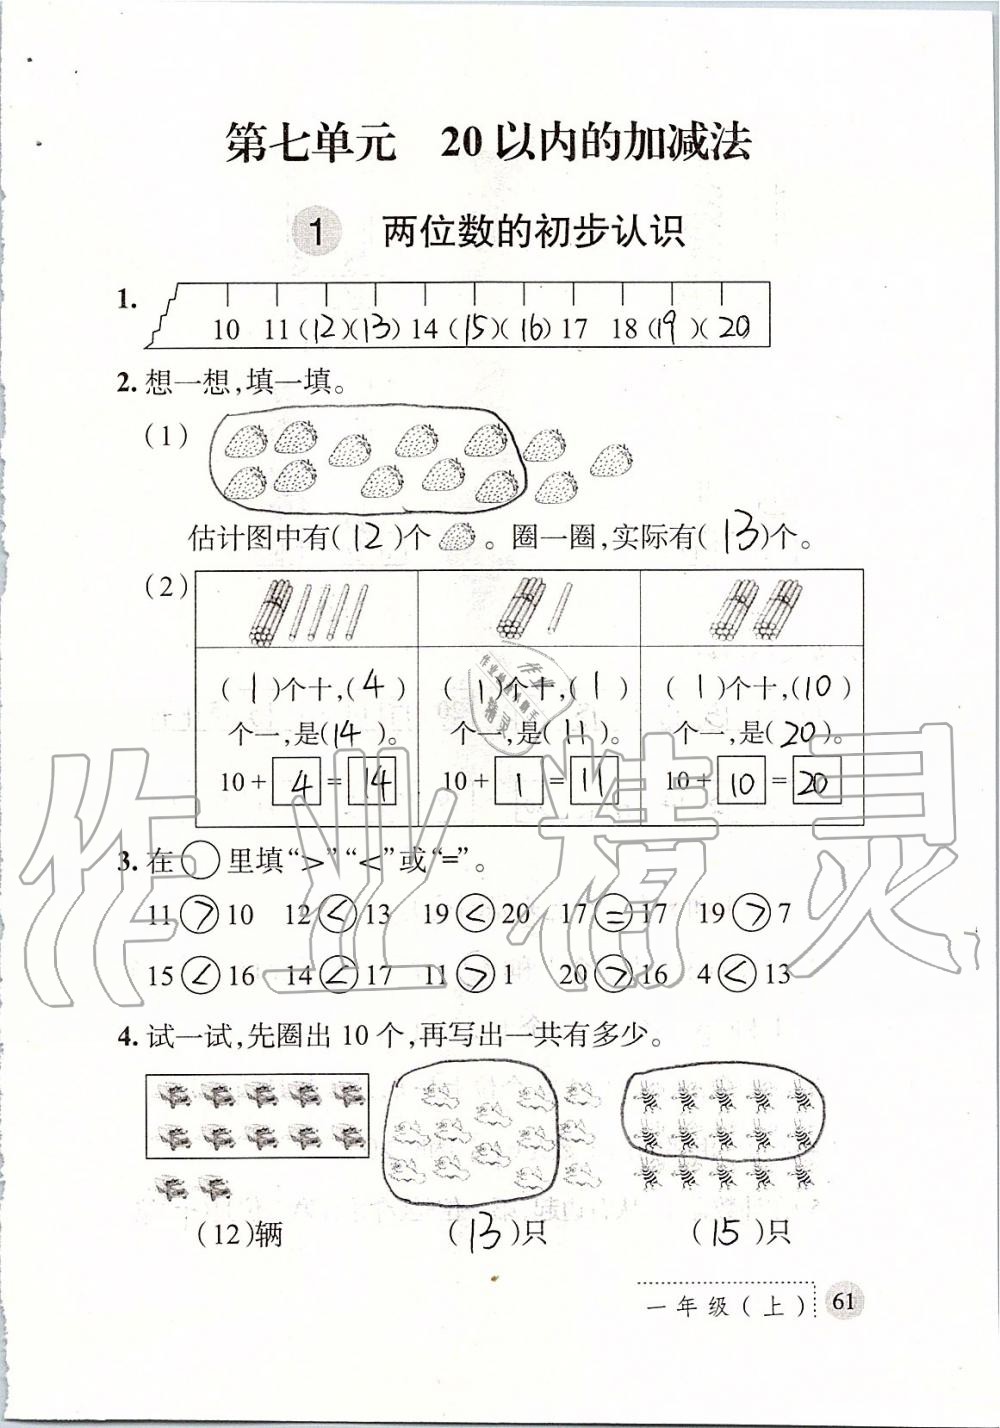 第七单元 20以内的加减法
1 两位数的初步认识
1.
10 11 (12)(13) 14 (15)(16) 17 18 (19)(20
2. 想一想,填一填。
(1)
估计图中有(12)个 。圈一圈,实际有(13)个。
(2)
(1)个十,(4) (1)个十,(1) (1)个十,(10)
个一,是(14)。 个一,是(11)。 个一,是(20)。
10+4=14 10+1=11 10+10=20
3. 在○里填“>”“<”或“=”。
11>10 12<13 19<20 17=17 19>7
15<16 14<17 11>1 20>16 4<13
4. 试一试,先圈出10个,再写出一共有多少。
(12)辆 (13)只 (15)只
一年级(上) 61
作业精灵